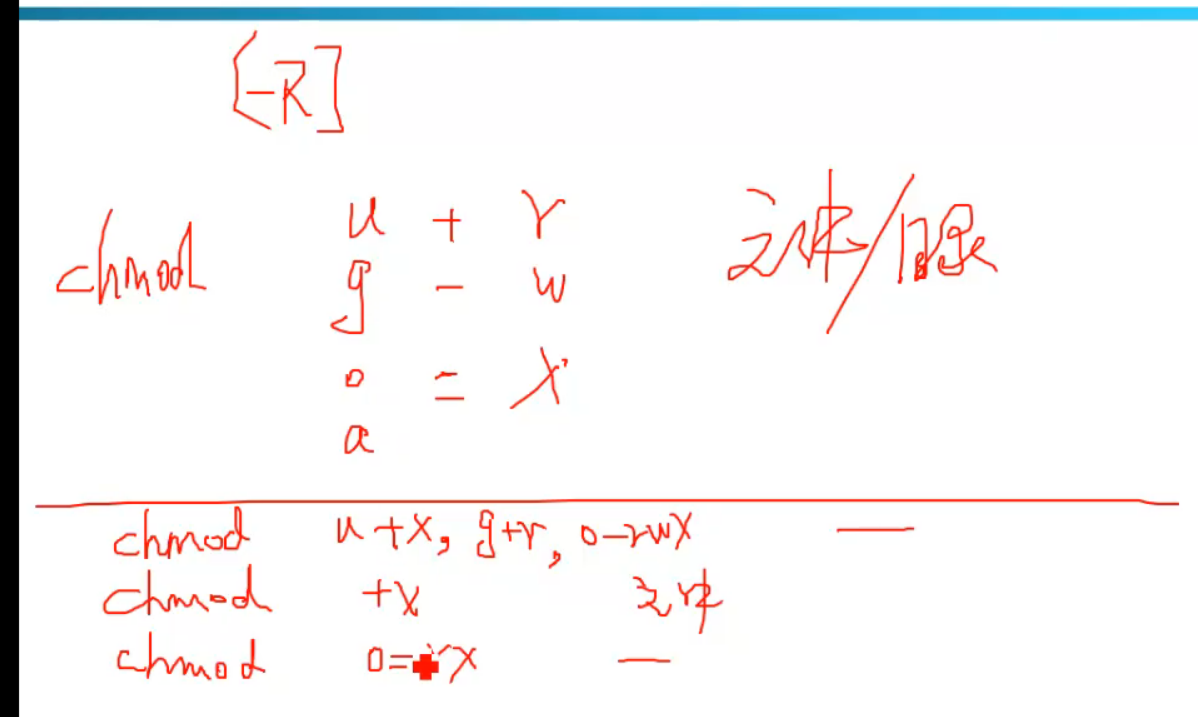 [-R]
chmod u + r 文件/目录
g - w
o = x
a
chmod u+x, g+r, o-rwx —
chmod +x 文件
chmod o=rx —